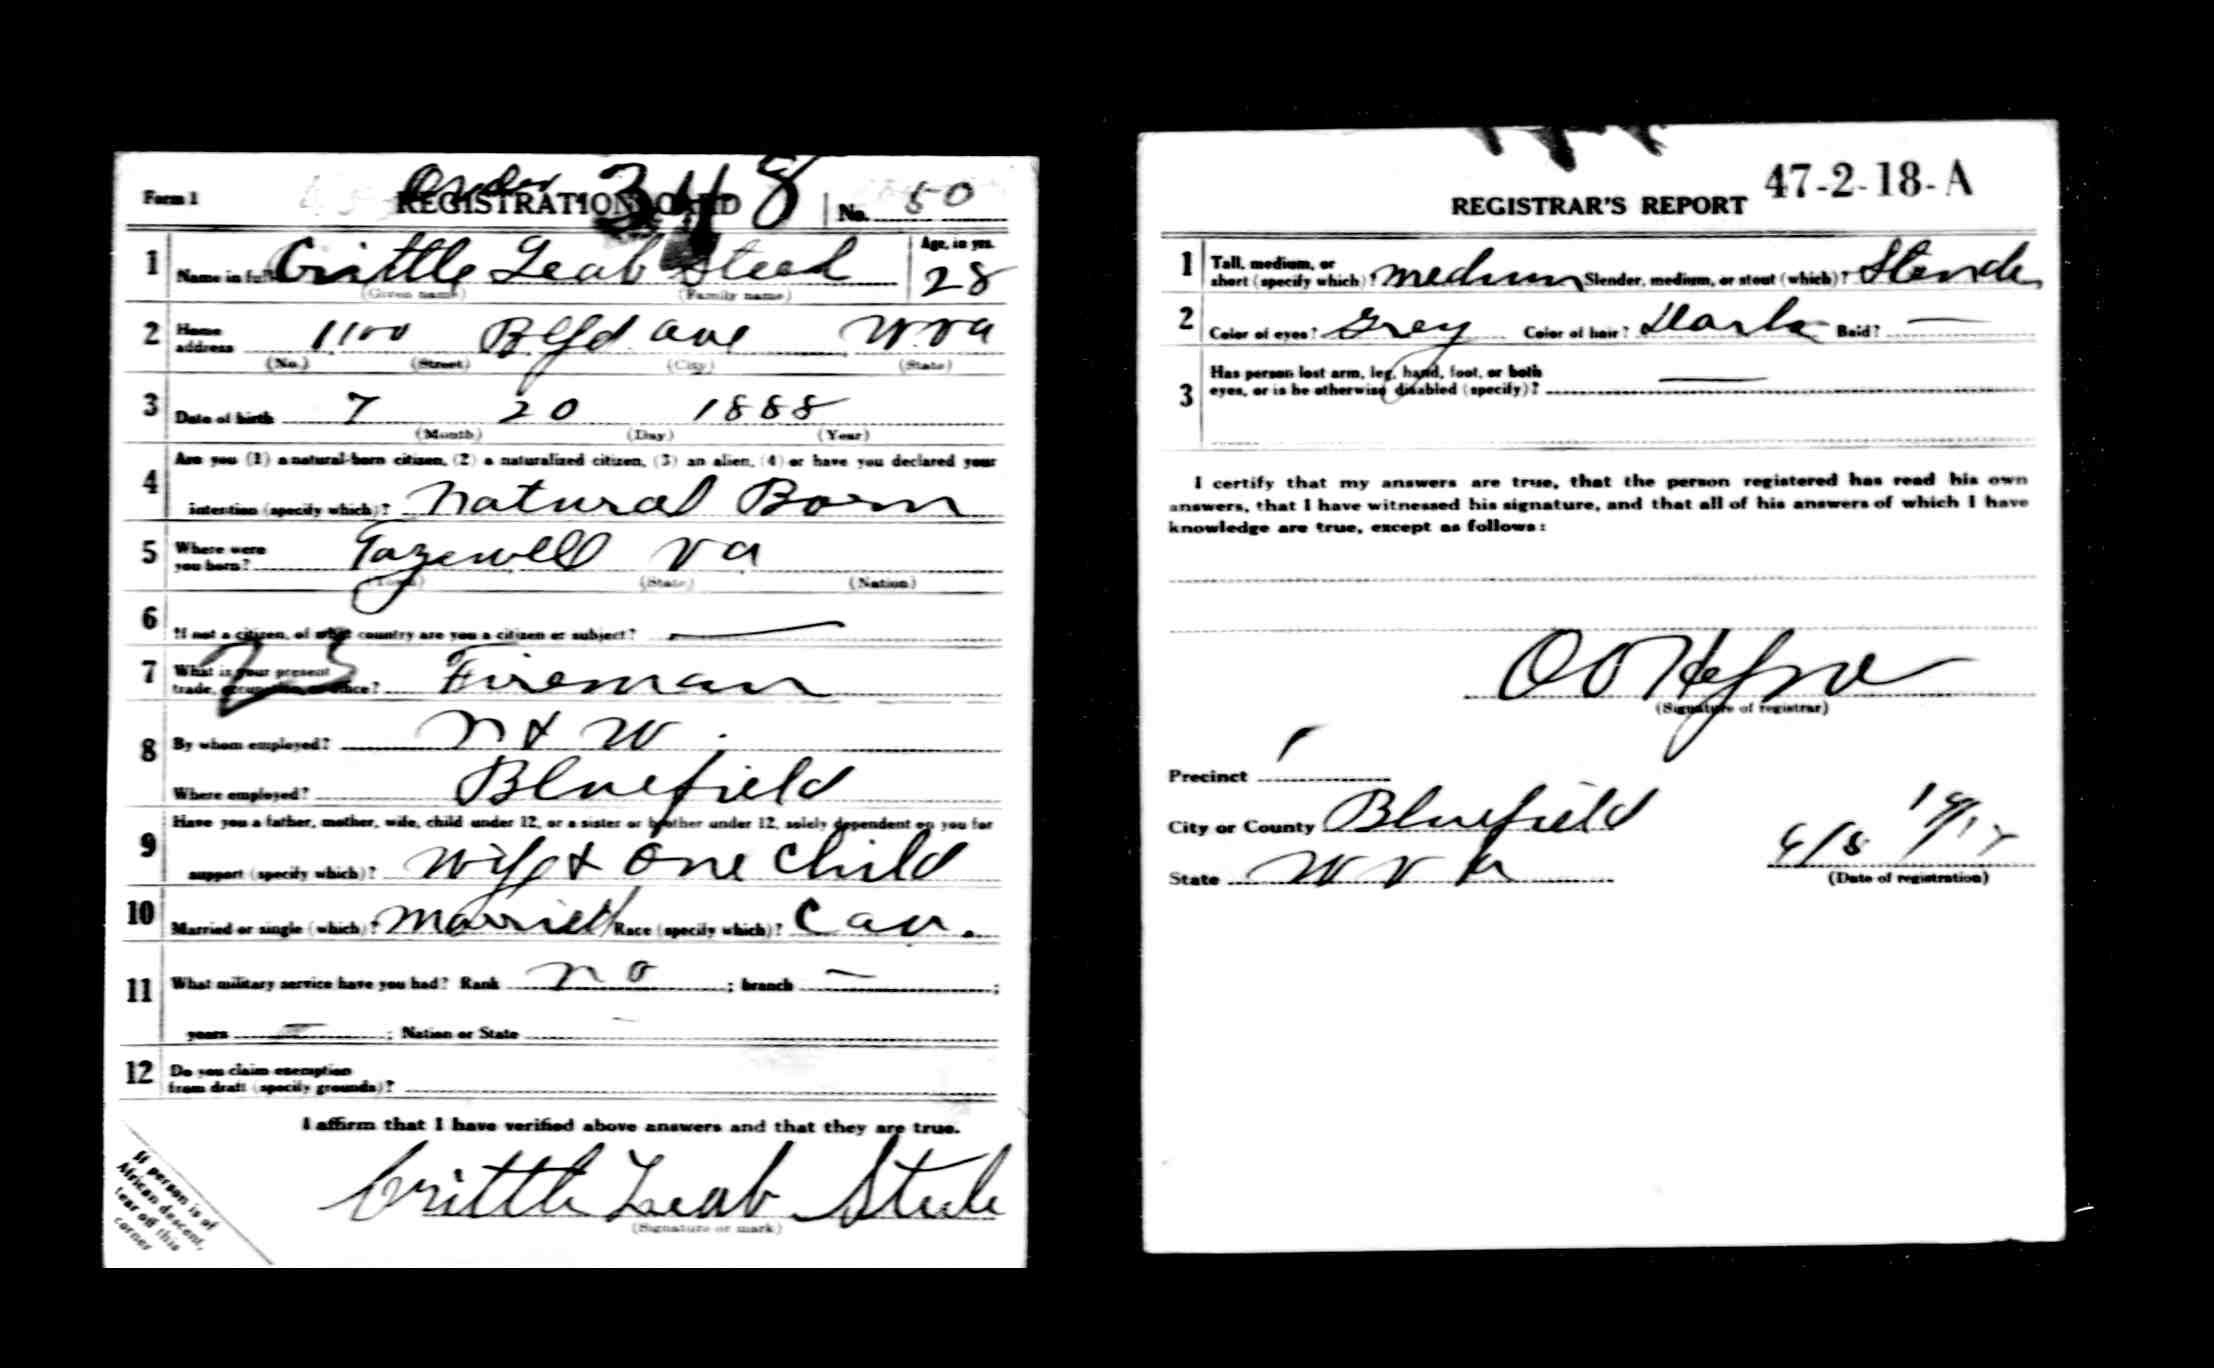 Form 1
Order 348
REGISTRATION CARD No. 50
1 Name in full Crittle Leab Steel Age, in yrs. 28
(Given name) (Family name)
2 Home address 1100 Blfd. ave W.Va
(No.) (Street) (City) (State)
3 Date of birth 7 20 1888
(Month) (Day) (Year)
4 Are you (1) a natural-born citizen, (2) a naturalized citizen, (3) an alien, (4) or have you declared your
intention (specify which)? Natural Born
5 Where were you born? Tazewell Va
(Town) (State) (Nation)
6 If not a citizen, of what country are you a citizen or subject? —
7 What is your present trade, occupation, or office? Fireman
23
8 By whom employed? N & W.
Where employed? Bluefield
9 Have you a father, mother, wife, child under 12, or a sister or brother under 12, solely dependent on you for
support (specify which)? Wife & One Child
10 Married or single (which)? Married Race (specify which)? Cau.
11 What military service have you had? Rank no ; branch — ;
years — ; Nation or State —
12 Do you claim exemption
from draft (specify grounds)?
I affirm that I have verified above answers and that they are true.
Crittle Leab Steele
(Signature or mark)
If person is of
African descent,
tear off this
corner
47-2-18-A
REGISTRAR'S REPORT
1 Tall, medium, or
short (specify which)? medium Slender, medium, or stout (which)? Slender
2 Color of eyes? Grey Color of hair? Dark Bald? —
3 Has person lost arm, leg, hand, foot, or both
eyes, or is he otherwise disabled (specify)? —
I certify that my answers are true, that the person registered has read his own
answers, that I have witnessed his signature, and that all of his answers of which I have
knowledge are true, except as follows:
(Signature of registrar)
Precinct 1
City or County Bluefield
State W Va 6/5 1917
(Date of registration)